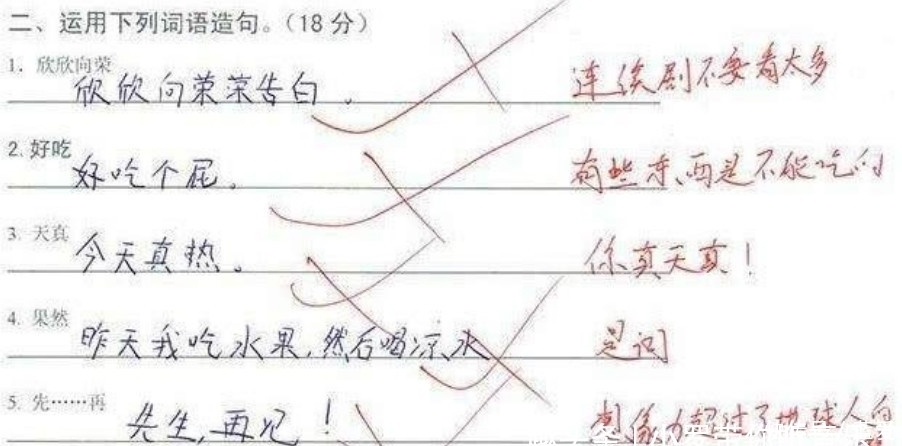 二、运用下列词语造句。(18分)
1. 欣欣向荣
欣欣向荣荣告白。
连续剧不要看太多
2. 好吃
好吃个屁。
有些东西是不能吃的
3. 天真
今天真热。
你真天真!
4. 果然
昨天我吃水果,然后喝凉水
是词
5. 先……再
先生,再见!
想像力超过了地球人